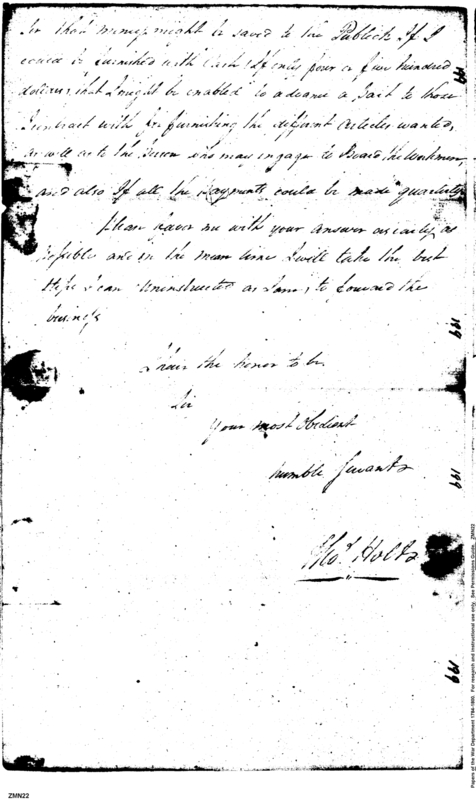 for that money might be saved to the Publick If I
could be furnished with Cash If only four or five hundred
dollars, that I might be enabled to advance a Part to those
I contract with for furnishing the different articles wanted,
as well as to the Person who may engage to Board the workmen
and also If all the payments could be made quarterly
Please favor me with your answer as early as
Possible and in the mean time I will take the best
Steps I can Uninstructed as I am, to forward the
business
I have the honor to be
Sir
Your most Obedient
humble Servant
Tho.s Holt
199
199
199
199
Papers of the War Department 1784-1800. For research and instructional use only. See Permissions Guide. ZMN22
ZMN22